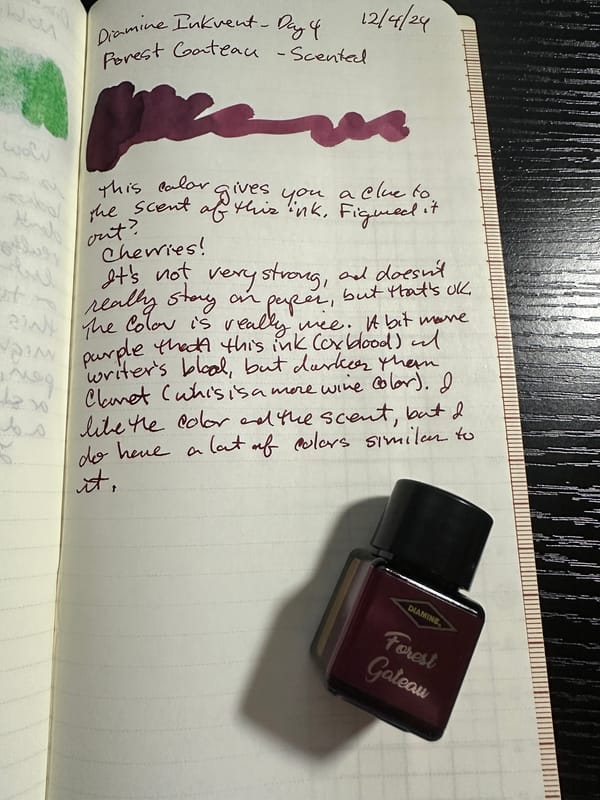 Diamine Inkvent - Day 4 12/4/24
Forest Gateau - Scented
This color gives you a clue to
the scent of this ink. Figured it
out?
Cherries!
It's not very strong, and doesn't
really stay on paper, but that's OK.
The color is really nice. A bit more
purple than this ink (oxblood) and
writer's blood, but darker than
Claret (which is a more wine color). I
like the color and the scent, but I
do have a lot of colors similar to
it.
DIAMINE
Forest
Gateau